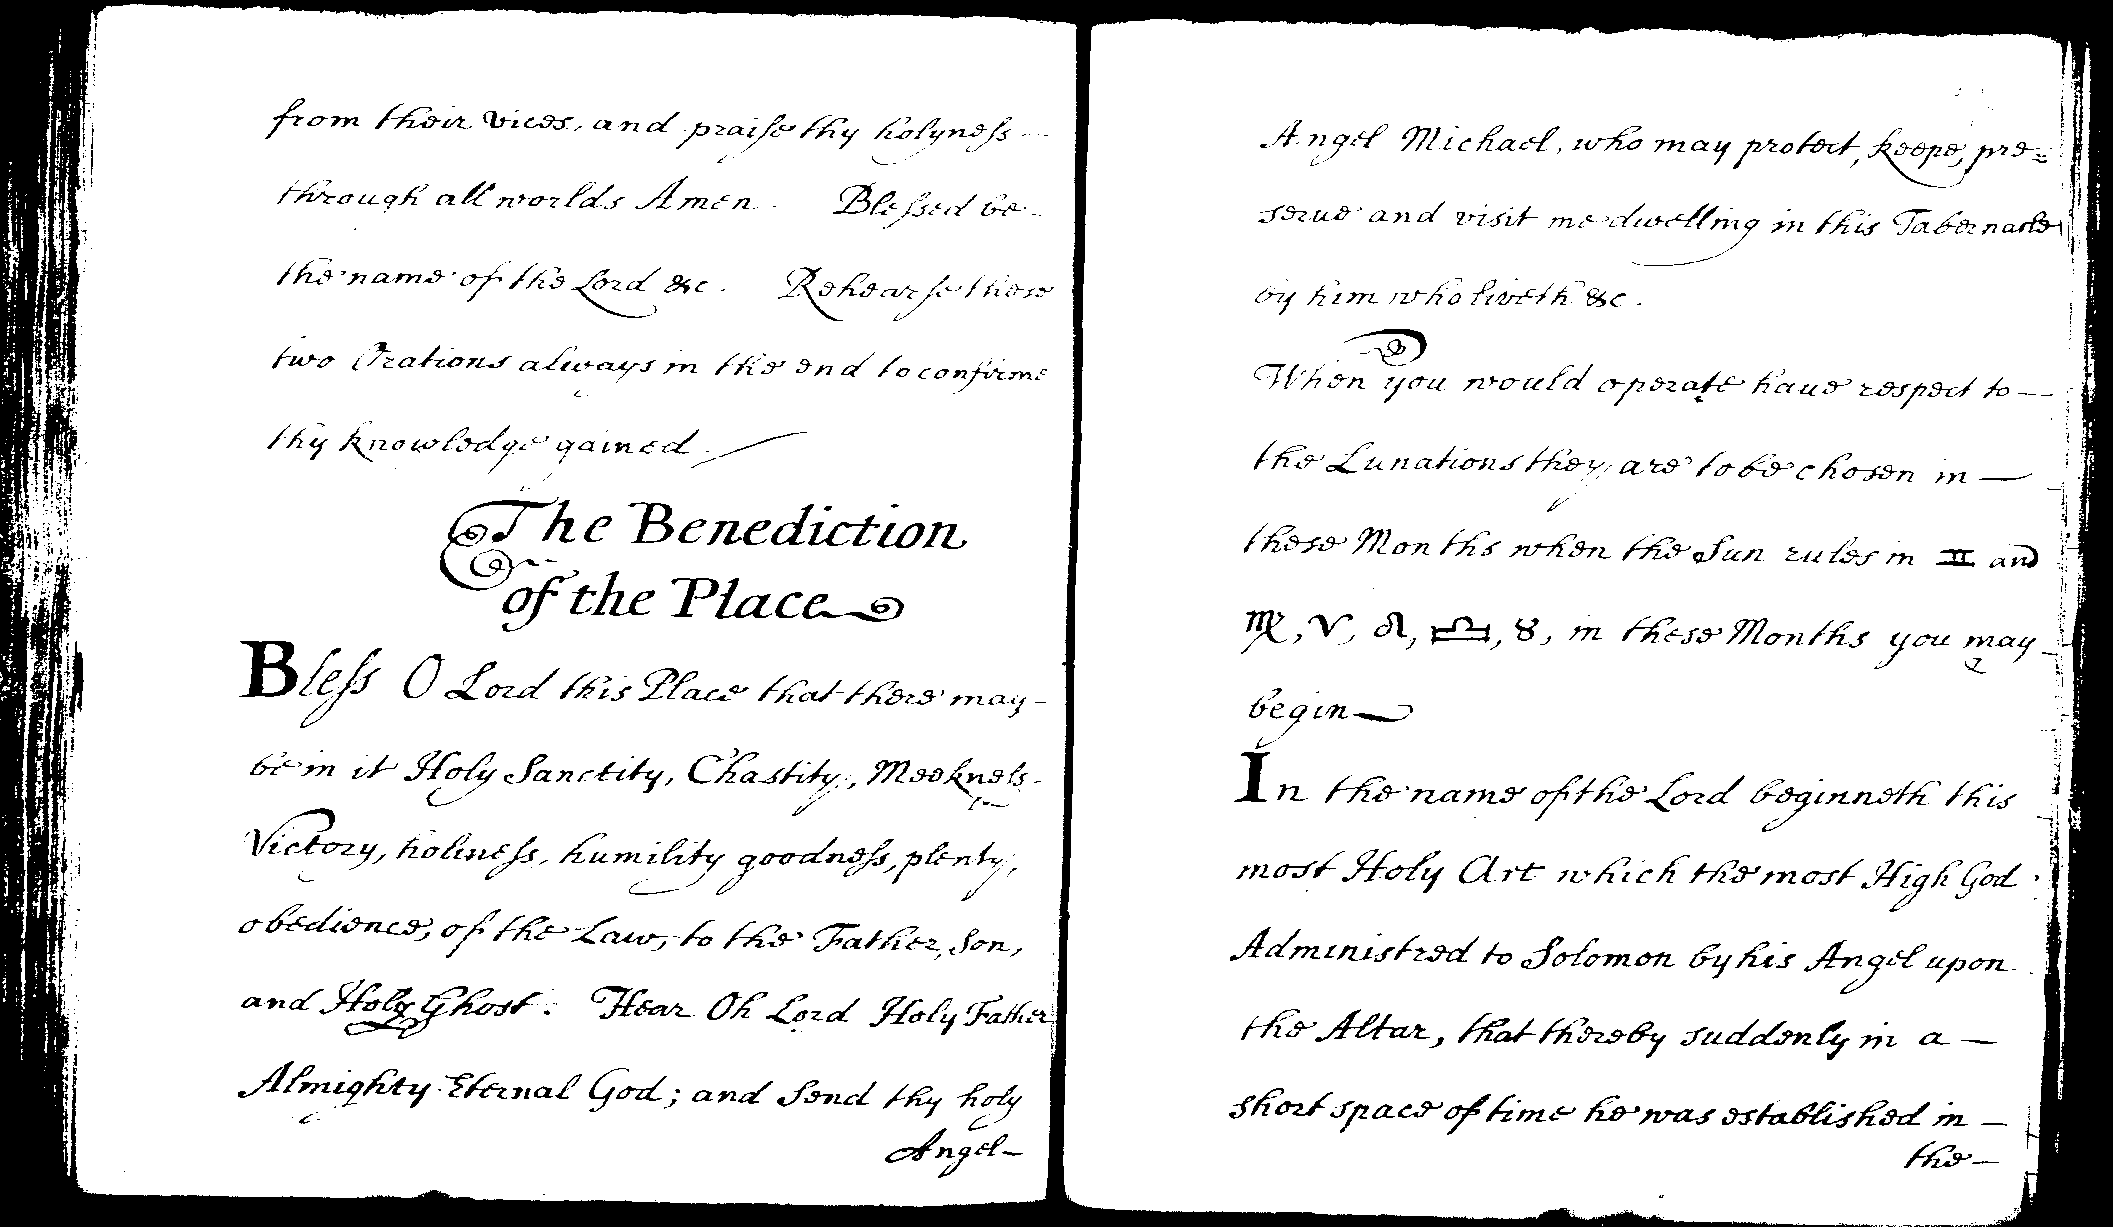 from their vices, and praise thy holyness
through all worlds Amen. Blessed be
the name of the Lord &c. Rehearse these
two Orations always in the end to confirme
thy knowledge gained.
The Benediction
of the Place
Bless O Lord this Place that there may
be in it Holy Sanctity, Chastity, Meekness
Victory, holiness, humility goodness, plenty,
obedience, of the Law, to the Father, Son,
and Holy Ghost. Hear Oh Lord Holy Father
Almighty Eternal God; and Send thy holy
Angel
Angel Michael, who may protect, keepe, pre=
serue and visit me dwelling in this Tabernacle
by him who liveth &c.
When you would operate haue respect to
the Lunations they are to be chosen in
these Months when the Sun rules in ♊ and
♍, ♈, ♌, ♎, ♉, in these Months you may
begin
In the name of the Lord beginneth this
most Holy Art which the most High God
Administred to Solomon by his Angel upon
the Altar, that thereby suddenly in a
short space of time he was established in
the